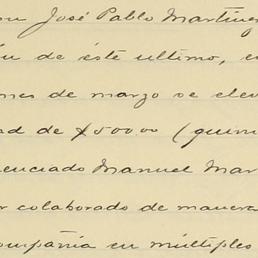 José Pablo Martínez
de éste ultimo, e
mes de marzo se elev
ad de $500.00 (quini
enciado Manuel Mar
r colaborado de manera
ompañía en múltiples